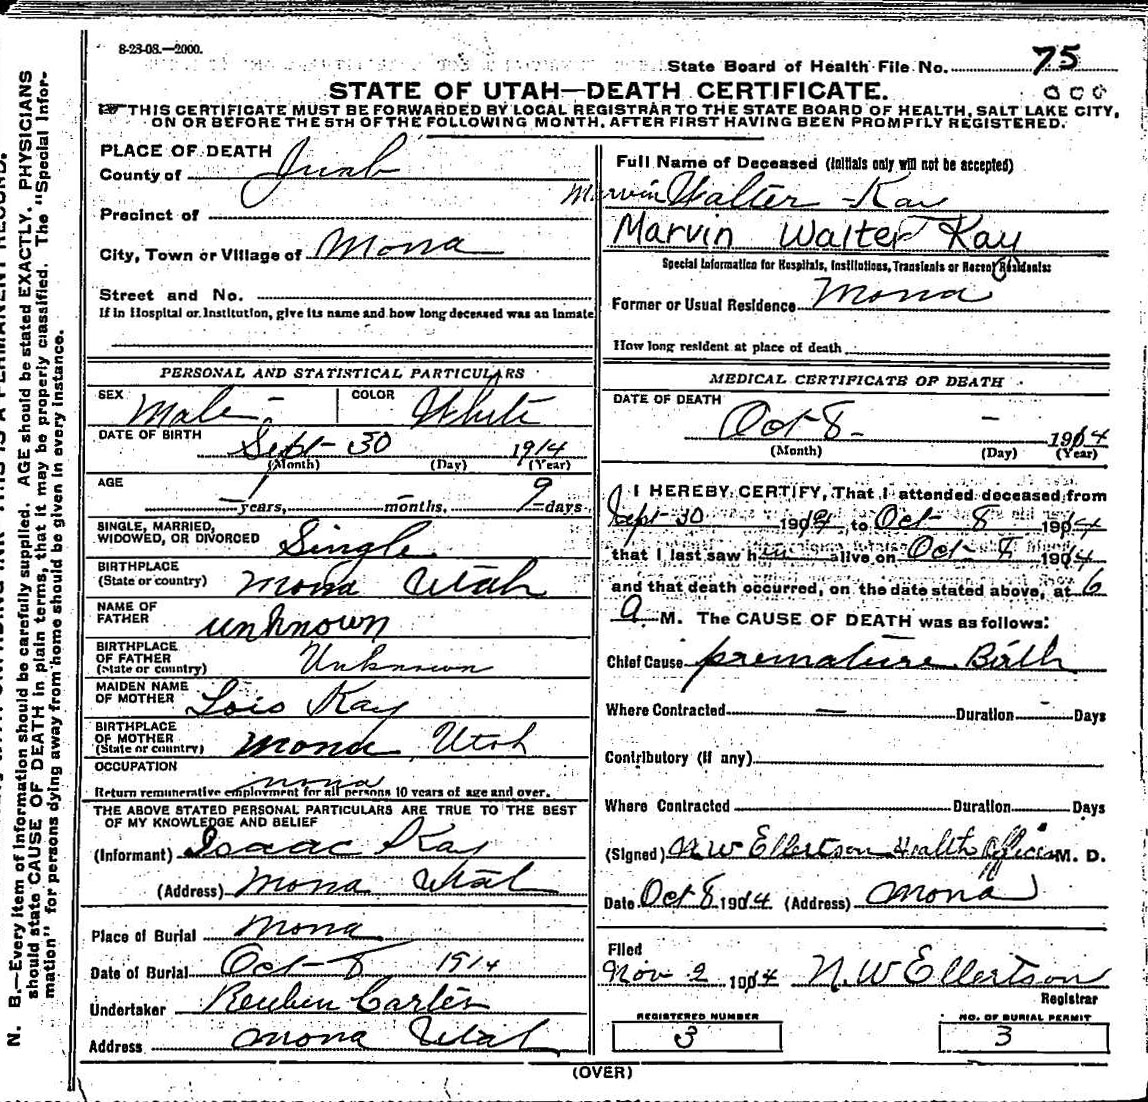 8-23-08.—2000.
State Board of Health File No. 75
STATE OF UTAH—DEATH CERTIFICATE.
THIS CERTIFICATE MUST BE FORWARDED BY LOCAL REGISTRAR TO THE STATE BOARD OF HEALTH, SALT LAKE CITY,
ON OR BEFORE THE 5TH OF THE FOLLOWING MONTH, AFTER FIRST HAVING BEEN PROMPILY REGISTERED.
PLACE OF DEATH
County of Juab
Precinct of
City, Town or Village of Mona
Street and No.
If in Hospital or Institution, give its name and how long deceased was an inmate
PERSONAL AND STATISTICAL PARTICULARS
SEX Male COLOR White
DATE OF BIRTH Sept 30 1914
(Month) (Day) (Year)
AGE
years, months, 9 days
SINGLE, MARRIED,
WIDOWED, OR DIVORCED Single
BIRTHPLACE
(State or country) Mona Utah
NAME OF
FATHER unknown
BIRTHPLACE
OF FATHER
(State or country) Unknown
MAIDEN NAME
OF MOTHER Lois Kay
BIRTHPLACE
OF MOTHER
(State or country) Mona Utah
OCCUPATION
mona
Return remunerative employment for all persons 10 years of age and over.
THE ABOVE STATED PERSONAL PARTICULARS ARE TRUE TO THE BEST
OF MY KNOWLEDGE AND BELIEF
(Informant) Isaac Kay
(Address) Mona Utah
Place of Burial Mona
Date of Burial Oct-8 1914
Undertaker Reuben Carter
Address Mona Utah
Full Name of Deceased (Initials only will not be accepted)
Marvin Walter Kay
Marvin Walter Kay
Special Information for Hospitals, Institutions, Transients or Recent Residents:
Former or Usual Residence Mona
How long resident at place of death
MEDICAL CERTIFICATE OF DEATH
DATE OF DEATH
Oct 8 - 1914
(Month) (Day) (Year)
I HEREBY CERTIFY, That I attended deceased from
Sept 30 1914 to Oct 8 1914
that I last saw him alive on Oct 8 1914
and that death occurred, on the date stated above, at 6
a M. The CAUSE OF DEATH was as follows:
Chief Cause premature Birth
Where Contracted — Duration - Days
Contributory (If any)
Where Contracted Duration Days
(Signed) N W Ellertson Health Officer M. D.
Date Oct 8 1914 (Address) Mona
Filed
Nov 2 1914 N. W Ellertson
Registrar
REGISTERED NUMBER
3
NO. OF BURIAL PERMIT
3
(OVER)
N. B.—Every item of information should be carefully supplied. AGE should be stated EXACTLY. PHYSICIANS
should state CAUSE OF DEATH in plain terms, that it may be properly classified. The "Special Infor-
mation" for persons dying away from home should be given in every instance.